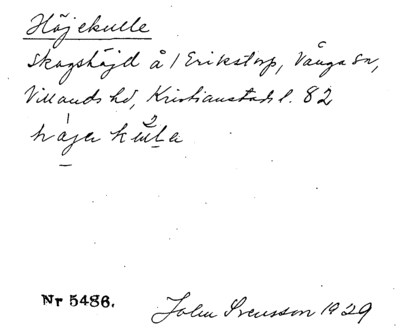 Höjekulle
Skogshöjd å 1 Erikstorp, Vånga sn,
Villands hd, Kristianstads l. 82
håja kula
Nr 5486.
John Svensson 1929